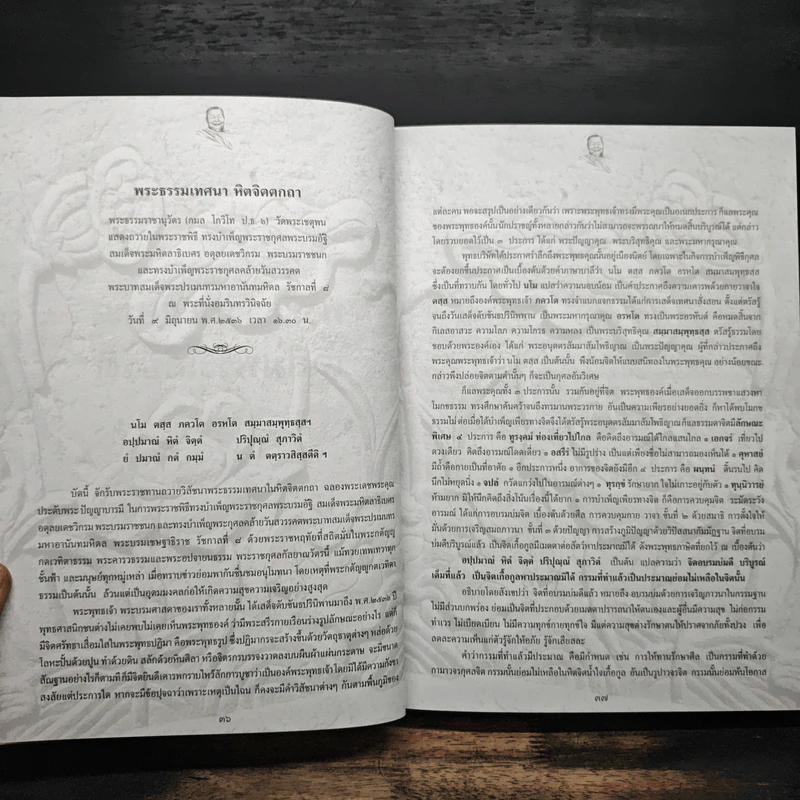 พระธรรมเทศนา หิตจิตตกถา
พระธรรมราชานุวัตร (กมล โกวิโท ป.ธ. ๖) วัดพระเชตุพน
แสดงถวายในพระราชพิธี ทรงบำเพ็ญพระราชกุศลพระบรมอัฐิ
สมเด็จพระมหิตลาธิเบศร อดุลยเดชวิกรม พระบรมราชชนก
และทรงบำเพ็ญพระราชกุศลคล้ายวันสวรรคต
พระบาทสมเด็จพระปรเมนทรมหาอานันทมหิดล รัชกาลที่ ๘
ณ พระที่นั่งอมรินทรวินิจฉัย
วันที่ ๙ มิถุนายน พ.ศ.๒๕๓๖ เวลา ๑๖.๓๐ น.
นโม ตสฺส ภควโต อรหโต สมฺมาสมฺพุทฺธสฺสฯ
อปฺปมาณํ หิตํ จิตฺตํ ปริปุณฺณํ สุภาวิตํ
ยํ ปมาณํ กตํ กมฺมํ น ตํ ตตฺราวสิสฺสตีติ ฯ
บัดนี้ จักรับพระราชทานถวายวิสัชนาพระธรรมเทศนาในหิตจิตตกถา ฉลองพระเดชพระคุณ
ประดับพระปัญญาบารมี ในการพระราชพิธีทรงบำเพ็ญพระราชกุศลพระบรมอัฐิ สมเด็จพระมหิตลาธิเบศร
อดุลยเดชวิกรม พระบรมราชชนก และทรงบำเพ็ญพระราชกุศลคล้ายวันสวรรคตพระบาทสมเด็จพระปรเมนทร
มหาอานันทมหิดล พระบรมเชษฐาธิราช รัชกาลที่ ๘ ด้วยพระหฤทัยที่สถิตมั่นในพระกตัญญู
กตเวทิตาธรรม พระคารวธรรมและพระอปจายนธรรม พระราชกุศลกัลยาณวัตรนี้ แม้ทวยเทพเทวาทุก
ชั้นฟ้า และมนุษย์ทุกหมู่เหล่า เมื่อทราบข่าวย่อมพากันชื่นชมอนุโมทนา โดยเหตุที่พระกตัญญูกตเวทิตา
ธรรมเป็นต้นนั้น ล้วนแต่เป็นอุดมมงคลก่อให้เกิดความสุขความเจริญอย่างสูงสุด
พระพุทธเจ้า พระบรมศาสดาของเราทั้งหลายนั้น ได้เสด็จดับขันธปรินิพพานมาถึง พ.ศ.๒๕๓๖ ปี
พุทธศาสนิกชนต่างไม่เคยพบไม่เคยเห็นพระพุทธองค์ ว่ามีพระสรีรกายเรือนร่างรูปลักษณ์อย่างไร แต่ก็
มีจิตศรัทธาเลื่อมใสในพระพุทธปฏิมา คือพระพุทธรูป ซึ่งปฏิมากรจะสร้างขึ้นด้วยวัตถุธาตุต่างๆ หล่อด้วย
โลหะปั้นด้วยปูน ทำด้วยดิน สลักด้วยหินศิลา หรือจิตรกรบรรจงวาดลงบนผืนผ้าแผ่นกระดาษ จะมีขนาด
สัณฐานอย่างไรก็ตามทีก็มีจิตยินดีเคารพกราบไหว้สักการบูชาว่าเป็นองค์พระพุทธเจ้าโดยมิได้มีความกังขา
สงสัยแต่ประการใด หากจะมีข้อปุจฉาว่าเพราะเหตุเป็นไฉน ก็คงจะมีคำวิสัชนาต่างๆ กันตามพื้นภูมิของ
๓๖
แต่ละคน พอจะสรุปเป็นอย่างเดียวกันว่า เพราะพระพุทธเจ้าทรงมีพระคุณเป็นอเนกประการ ก็แลพระคุณ
ของพระพุทธองค์นั้นนักปราชญ์ทั้งหลายกล่าวกันว่าไม่สามารถจะพรรณนาให้หมดสิ้นบริบูรณ์ได้ แต่กล่าว
โดยรวบยอดไว้เป็น ๓ ประการ ได้แก่ พระปัญญาคุณ พระบริสุทธิคุณ และพระมหากรุณาคุณ
พุทธบริษัทได้ประกาศรำลึกถึงพระพุทธคุณนั้นอยู่เนืองนิตย์ โดยเฉพาะในกิจการบำเพ็ญพิธีกุศล
จะต้องยกขึ้นประกาศเป็นเบื้องต้นด้วยคำภาษาบาลีว่า นโม ตสฺส ภควโต อรหโต สมฺมาสมฺพุทฺธสฺส
ซึ่งเป็นที่ทราบกัน โดยทั่วไป นโม แปลว่าความนอบน้อม เป็นคำประกาศถึงความเคารพด้วยกายวาจาใจ
ตสฺส หมายถึงองค์พระพุทธเจ้า ภควโต ทรงจำแนกแจกธรรมได้แก่การเสด็จเทศนาสั่งสอน ตั้งแต่ตรัสรู้
จนถึงวันเสด็จดับขันธปรินิพพาน เป็นพระมหากรุณาคุณ อรหโต ทรงเป็นพระอรหันต์ คือหมดสิ้นจาก
กิเลสอาสวะ ความโลภ ความโกรธ ความหลง เป็นพระบริสุทธิคุณ สมฺมาสมฺพุทฺธสฺส ตรัสรู้ธรรมโดย
ชอบด้วยพระองค์เอง ได้แก่ พระอนุตตรสัมมาสัมโพธิญาณ เป็นพระปัญญาคุณ ผู้ที่กล่าวประกาศถึง
พระคุณพระพุทธเจ้าว่า นโม ตสฺส เป็นต้นนั้น พึงน้อมจิตให้แนบสนิทลงในพระพุทธคุณ อย่างน้อยขณะ
กล่าวพึงปล่อยจิตตามคำนั้นๆ ก็จะเป็นกุศลอันวิเศษ
ก็แลพระคุณทั้ง ๓ ประการนั้น รวมกันอยู่ที่จิต พระพุทธองค์เมื่อเสด็จออกบรรพชาแสวงหา
โมกขธรรม ทรงศึกษาค้นคว้าจนถึงทรมานพระวรกาย อันเป็นความเพียรอย่างยอดยิ่ง ก็หาได้พบโมกข
ธรรมไม่ ต่อเมื่อได้บำเพ็ญเพียรทางจิตจึงได้ตรัสรู้พระอนุตตรสัมมาสัมโพธิญาณ ก็แลธรรมดาจิตมีลักษณะ
พิเศษ ๔ ประการ คือ ทูรงฺคมํ ท่องเที่ยวไปไกล คือคิดถึงอารมณ์ได้ไกลแสนไกล ๑ เอกจรํ เที่ยวไป
ดวงเดียว คิดถึงอารมณ์โดดเดี่ยว ๑ อสรีรํ ไม่มีรูปร่าง เป็นแต่เพียงชื่อไม่สามารถมองเห็นได้ ๑ คุหาสยํ
มีถ้ำคือกายเป็นที่อาศัย ๑ อีกประการหนึ่ง อาการของจิตยังมีอีก ๔ ประการ คือ ผนฺทนํ ดิ้นรนไป คิด
นึกไม่หยุดนิ่ง ๑ จปลํ กวัดแกว่งไปในอารมณ์ต่างๆ ๑ ทุรกฺขํ รักษายาก ใจไม่เกาะอยู่กับตัว ๑ ทุนฺนิวารยํ
ห้ามยาก มิให้นึกคิดถึงสิ่งโน้นเรื่องนี้ได้ยาก ๑ การบำเพ็ญเพียรทางจิต ก็คือการควบคุมจิต ระมัดระวัง
อารมณ์ ได้แก่การอบรมบ่มจิต เบื้องต้นด้วยศีล การควบคุมกาย วาจา ขั้นที่ ๒ ด้วยสมาธิ การตั้งใจให้
มั่นด้วยการเจริญสมถภาวนา ขั้นที่ ๓ ด้วยปัญญา การสร้างภูมิปัญญาด้วยวิปัสสนากัมมัฏฐาน จิตที่อบรม
บ่มดีบริบูรณ์แล้ว เป็นจิตเกื้อกูลมีเมตตาต่อสัตว์หาประมาณมิได้ ดังพระพุทธภาษิตที่ยกไว้ ณ เบื้องต้นว่า
อปฺปมาณํ หิตํ จิตฺตํ ปริปุณฺณํ สุภาวิตํ เป็นต้น แปลความว่า จิตอบรมบ่มดี บริบูรณ์
เต็มที่แล้ว เป็นจิตเกื้อกูลหาประมาณมิได้ กรรมที่ทำแล้วเป็นประมาณย่อมไม่เหลือในจิตนั้น
อธิบายโดยสังเขปว่า จิตที่อบรมบ่มดีแล้ว หมายถึง อบรมบ่มด้วยการเจริญภาวนาในกรรมฐาน
ไม่มีส่วนบกพร่อง ย่อมเป็นจิตที่ประกอบด้วยเมตตาปรารถนาให้ตนเองและผู้อื่นมีความสุข ไม่ก่อกรรม
ทำเวร ไม่เบียดเบียน ไม่มีความทุกข์กายทุกข์ใจ มีแต่ความสุขต่างรักษาตนให้ปราศจากภัยทั้งปวง เพื่อ
ลดละความเห็นแก่ตัวรู้จักให้อภัย รู้จักเสียสละ
คำว่ากรรมที่ทำแล้วมีประมาณ คือมีกำหนด เช่น การให้ทานรักษาศีล เป็นกรรมที่ทำด้วย
กามาวจรกุศลจิต กรรมนั้นย่อมไม่เหลือในหิตจิตน้ำใจเกื้อกูล อันเป็นรูปาวจรจิต กรรมนั้นย่อมพ้นโอกาส
๓๗